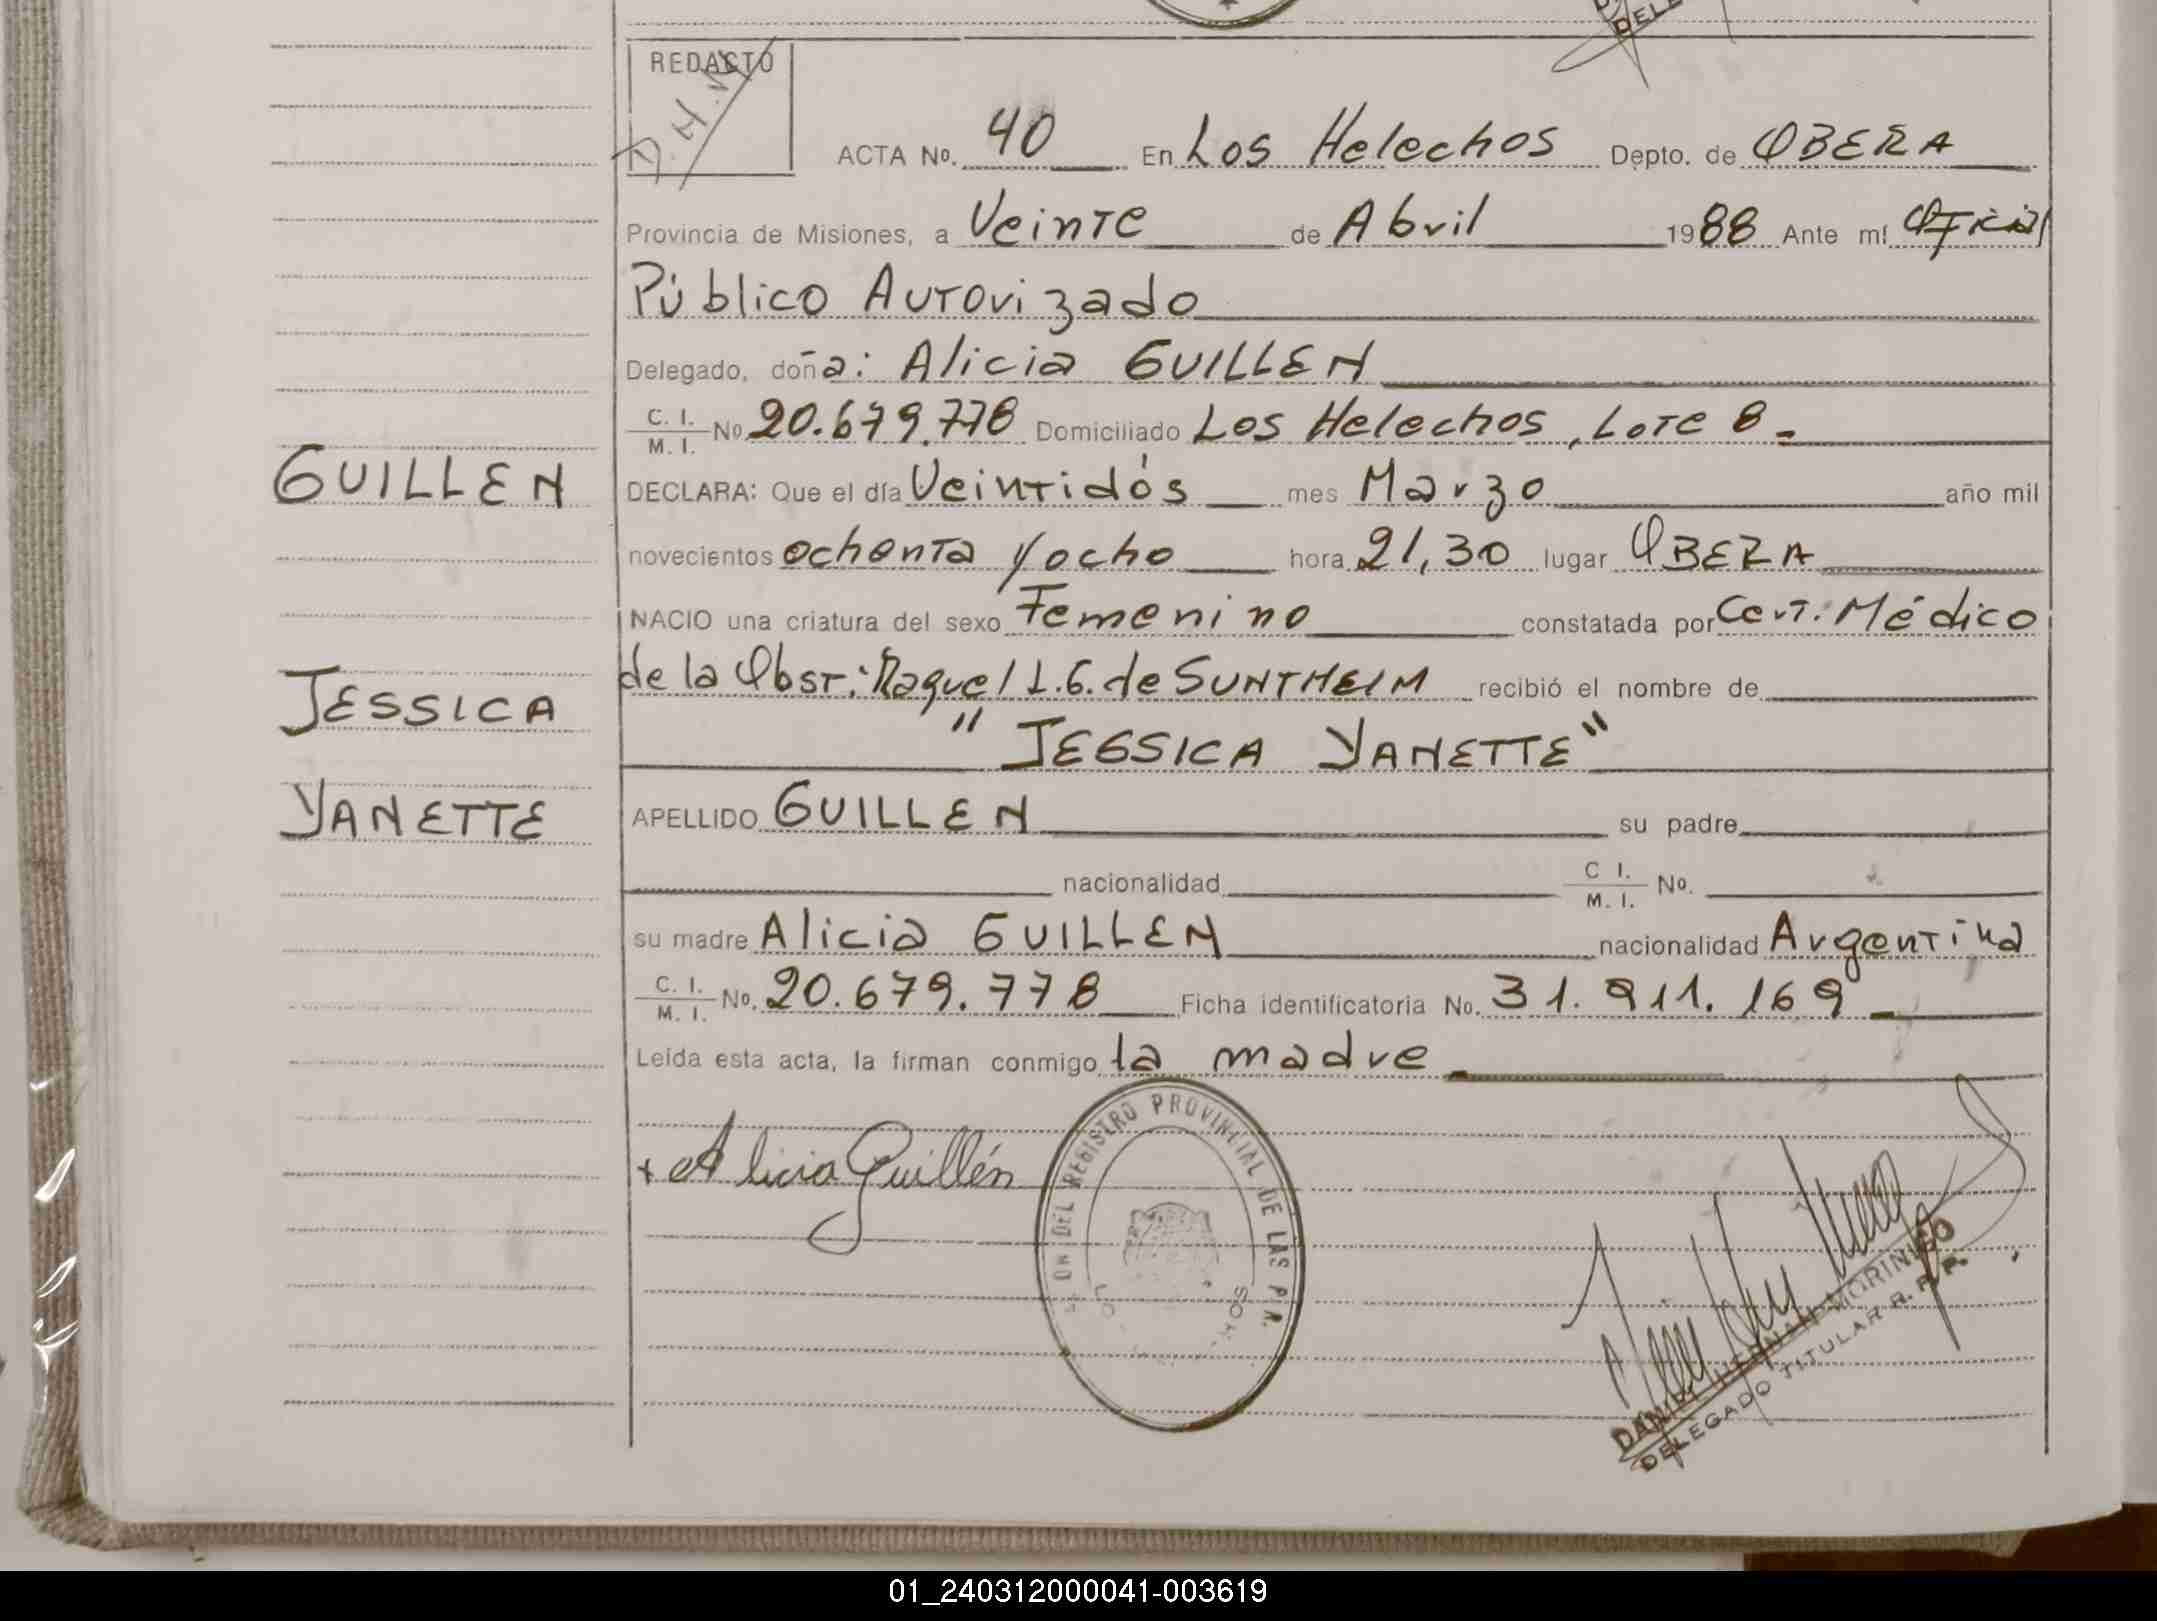 DELE
REDACTO
D.H.M
ACTA No. 40 En Los Helechos Depto. de OBERA
Provincia de Misiones, a Veinte de Abril 1988 Ante mí Oficial
Público Autorizado
Delegado, doña: Alicia GUILLEN
C. I. / M. I. No 20.679.778 Domiciliado Los Helechos, Lote 8.
GUILLEN
DECLARA: Que el día Veintidós mes Marzo año mil
novecientos ochenta y ocho hora 21,30 lugar OBERA
NACIO una criatura del sexo Femenino constatada por Cert. Médico
de la Obst. Raquel L.G. de SUNTHEIM recibió el nombre de
JESSICA
" JESSICA YANETTE "
YANETTE
APELLIDO GUILLEN su padre
nacionalidad C I. / M. I. No.
su madre Alicia GUILLEN nacionalidad Argentina
C. I. / M. I. No. 20.679.778 Ficha identificatoria No. 31.911.169
Leída esta acta, la firman conmigo la madre
+ Alicia Guillén
ON DEL REGISTRO PROVINCIAL DE LAS P.R.
DANIEL HERNAN MORINIGO
DELEGADO TITULAR R. P. P.
01_240312000041-003619